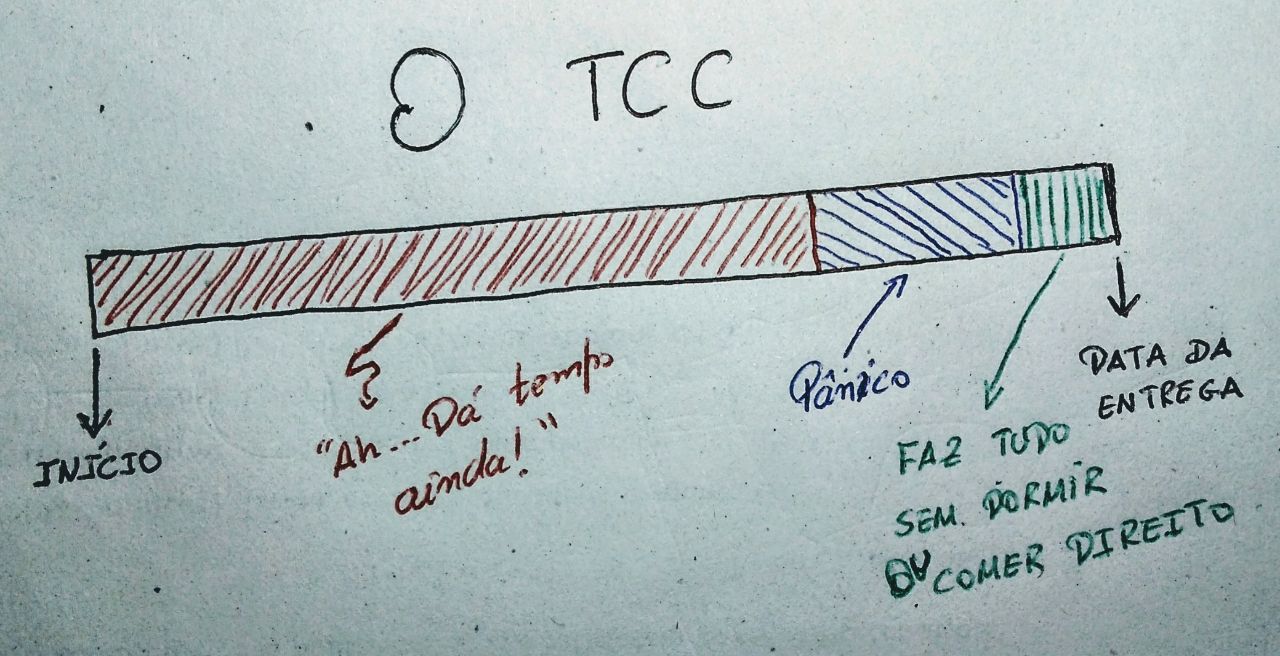 O TCC
INÍCIO
"Ah... Dá tempo
ainda!"
Pânico
FAZ TUDO
SEM DORMIR
OU COMER DIREITO
DATA DA
ENTREGA